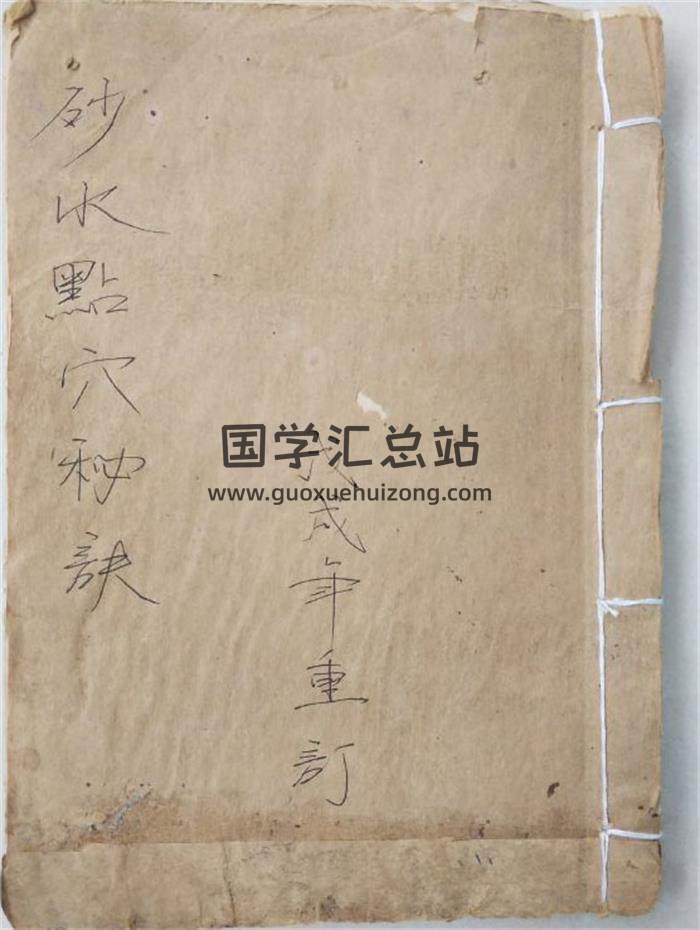 砂水點穴秘訣
戊戌年重訂
国学汇总站
www.guoxuehuizong.com